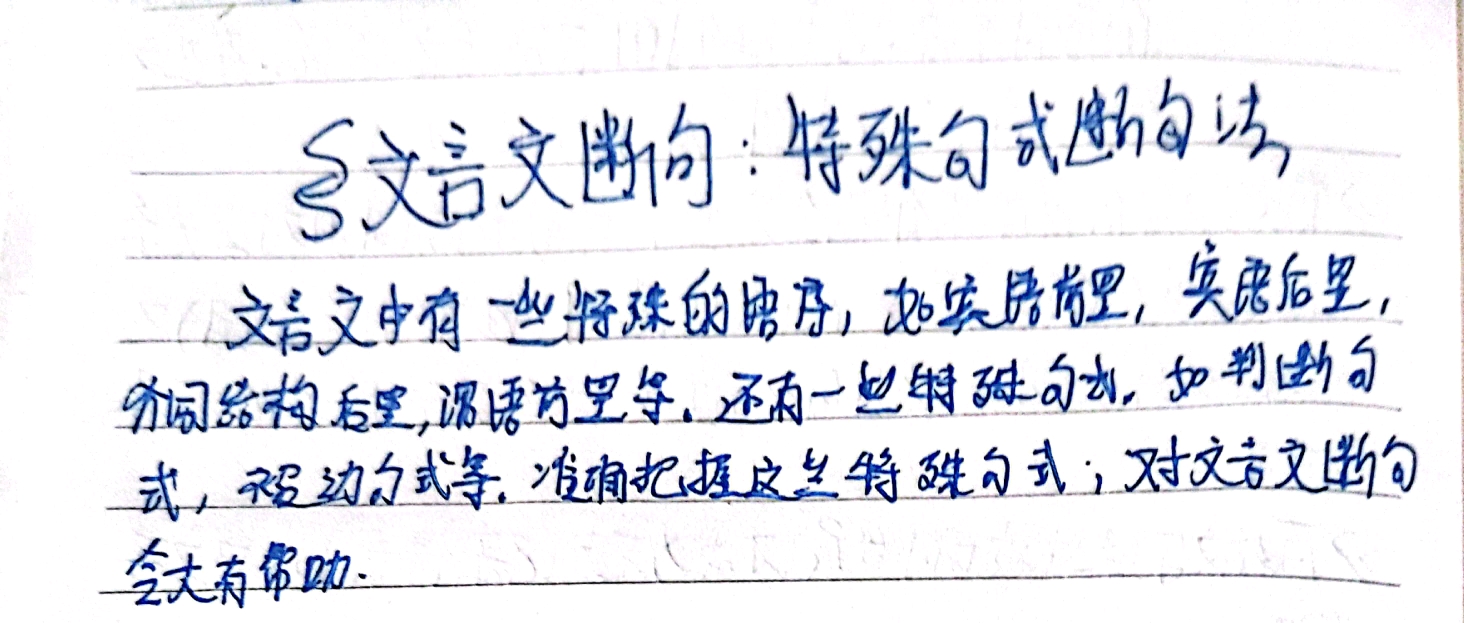 §文言文断句:特殊句式断句法
文言文中有一些特殊的语序,如宾语前置,宾语后置,
介词结构后置,谓语前置等.还有一些特殊句式.如判断句
式,被动句式等.准确把握这些特殊句式;对文言文断句
会大有帮助.